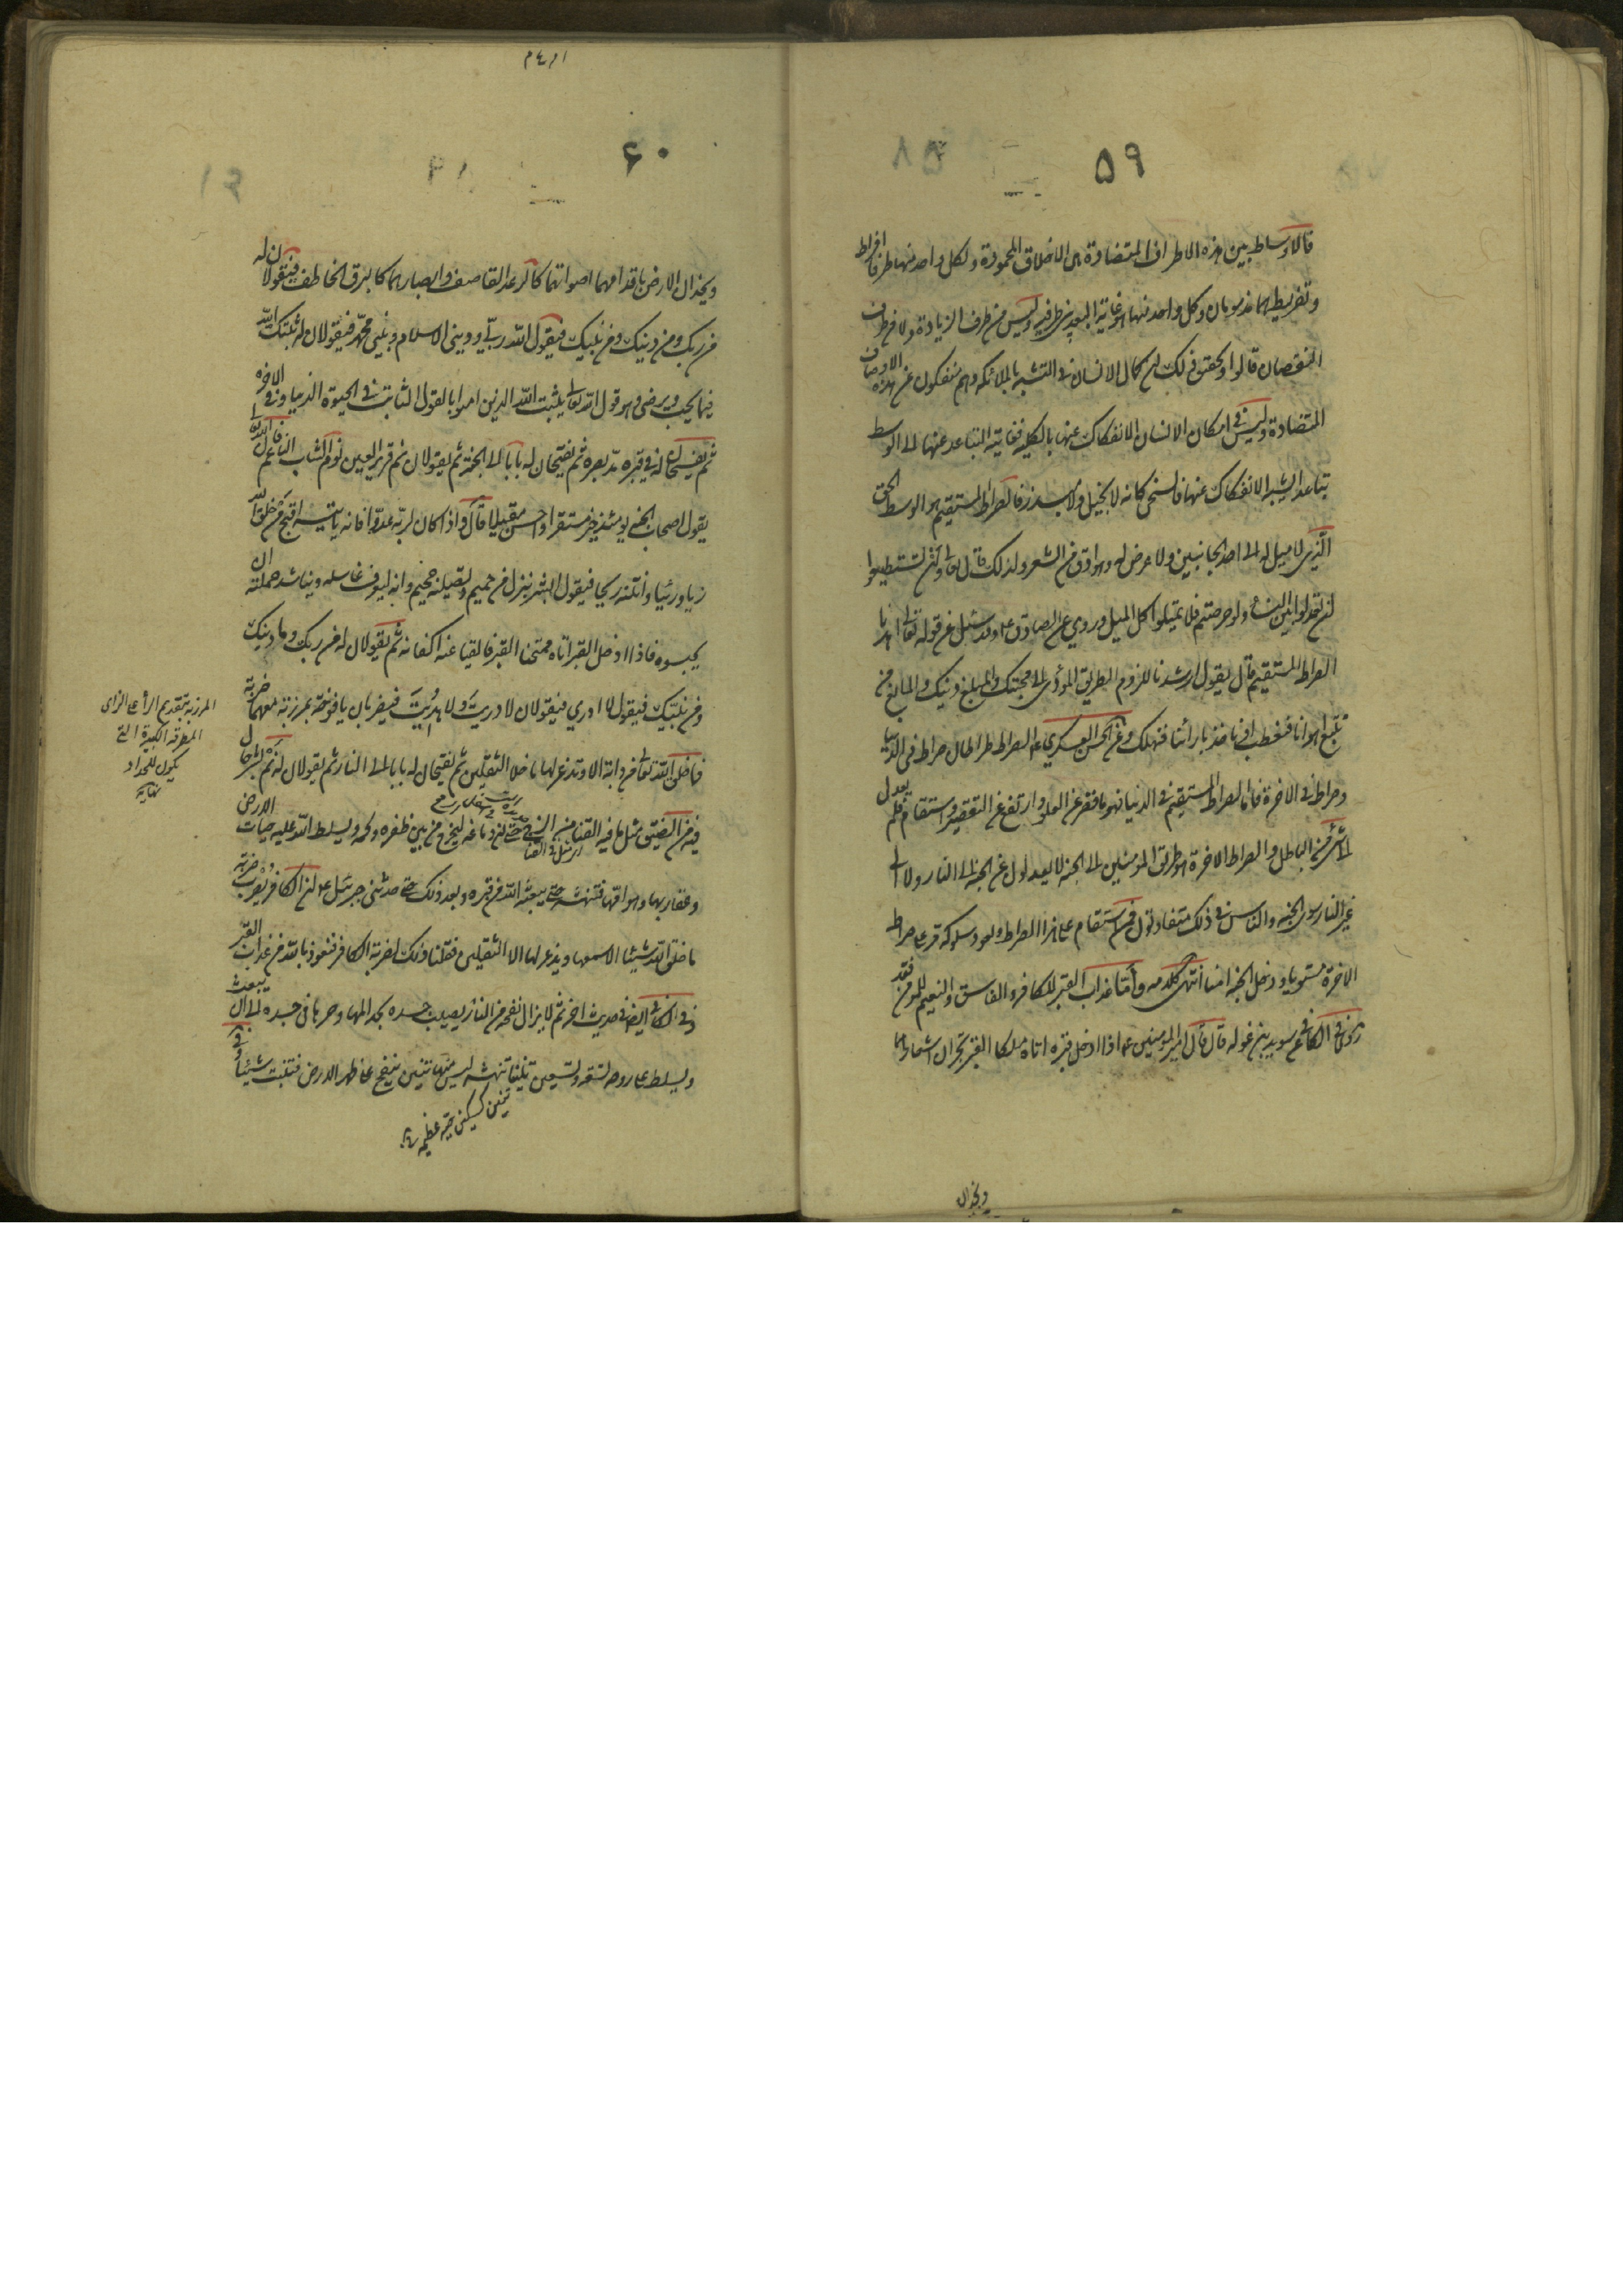 ٥٩
فالاوساط بين هذه الاطراف المتضادة هى الاخلاق المحمودة ولكل واحد منها طرفا افراط
وتفريط هما مذمومان وكل واحد منها هو غاية البعد بين طرفيه وليس من طرف الزيادة ولا من طرف
النقصان قالوا وتحقيق ذلك ان كمال الانسان فى التشبه بالملائكه وهم منفكون عن هذه الاوصاف
المتضادة وليس فى امكان الانسان الانفكاك عنها بالكليه فغايته التباعد عنها الى الوسط
تباعدا يشبه الانفكاك عنها فالسخى كانه لا بخيل ولا مبذر فالصراط المستقيم هو الوسط الحق
الذى لا ميل له الى احد الجانبين ولا عرض له وهو ادق من الشعر ولذلك قال تعالى ولن تستطيعوا
ان تعدلوا بين النساء ولو حرصتم فلا تميلوا كل الميل وروي عن الصادق ع وقد سئل عن قوله تعالى اهدنا
الصراط المستقيم قال يقول ارشدنا للزوم الطريق المؤدى الى محبتك والمبلغ دينك والمانع من
ان نتبع اهوائنا فنعطب او ناخذ بارائنا فنهلك وعن الحسن العسكري ع الصراط صراطان صراط فى الدنيا
وصراط فى الاخرة فاما الصراط المستقيم فى الدنيا فهو ما قصر عن الغلو وارتفع عن التقصير واستقام فلم يعدل
الى شئ من الباطل والصراط الاخرة هو طريق المؤمنين الى الجنه لا يعدلون عن الجنه الى النار ولا الى
غير النار سوى الجنه والناس فى ذلك متفاوتون فمن استقام على هذا الصراط وتعود سلوكه مر على صراط
الاخرة مستويا ودخل الجنه امنا انتهى كلامه واما عذاب القبر للكافر والفاسق والنعيم للمؤمن فقد
روى فى الكافى عن سويد بن غفله قال قال امير المؤمنين ع اذا ادخل قبره اتاه ملكا القبر يجران اشعارهما
ويخدان
٦٠
ويخدان الارض باقدامهما اصواتهما كالرعد القاصف وابصارهما كالبرق الخاطف فيقولان له
من ربك ومن دينك ومن نبيك فيقول الله ربي وديني الاسلام ونبيى محمد فيقولان له ثبتك الله
فيما يحب ويرضى وهو قول الله تعالى يثبت الله الذين امنوا بالقول الثابت فى الحيوة الدنيا وفى الاخره
ثم يفسحان له فى قبره مد بصره ثم يفتحان له بابا الى الجنة ثم يقولان نم قرير العين نوم الشاب الناعم فان الله تعالى
يقول اصحاب الجنة يومئذ خير مستقرا واحسن مقيلا قال واذا كان لربه عدوا فانه ياتيه اقبح من خلق الله
زيا ورئيا وانتنه ريحا فيقول ابشر بنزل من حميم وتصلية جحيم وانه ليعرف غاسله ويناشد حملته ان
يحبسوه فاذا ادخل القبر اتاه ممتحنا القبر فالقيا عنه اكفانه ثم يقولان له من ربك وما دينك
ومن نبيك فيقول لا ادري فيقولان لا دريت ولا هديت فيضربان يافوخه بمرزبة معهما ضربة
ما خلق الله تعالى من دابة الا وتذعر لها ما خلا الثقلين ثم يفتحان له بابا الى النار ثم يقولان له نم بشر حال
فيه من الضيق مثل ما فيه القنا من الزج حتى ان دماغه ليخرج من بين ظفره ولحمه ويسلط الله عليه حيات الارض
وعقاربها وهوامها فتنهشه حتى يبعثه الله من قبره وبعد ذلك حتى حدثنى جبرئيل ع ان الكافر يضرب ضربة
ما خلق الله شيئا الا سمعها ويذعر لها الا الثقلين فقلنا ذلك لضربة الكافر فنعوذ بالله من عذاب القبر
وفى الكافى ايضا فى حديث اخر ثم لا يزال نفحة من النار يصيب جسده يجد المها وحرها فى جسده الى ان يبعث
ويسلط على روحه تسعة وتسعين تنينا تنهشه ليس منها تنين ينفخ على ظهر الارض فتنبت شيئا
المرزبة بتقديم الراء على الزاى
المطرقة الكبيرة التى
يكون للحداد
نهاية
تنين كسكين حية عظيمة